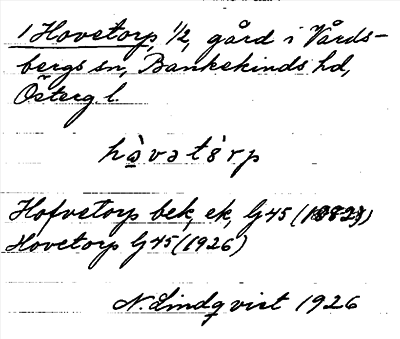 1 Hovetorp, 1/2, gård i Vårds-
bergs sn, Bankekinds hd,
Österg l.
hàvətórp
Hofvetorp bek, ek, G45 (1882)
Hovetorp G45 (1926)
N. Lindqvist 1926